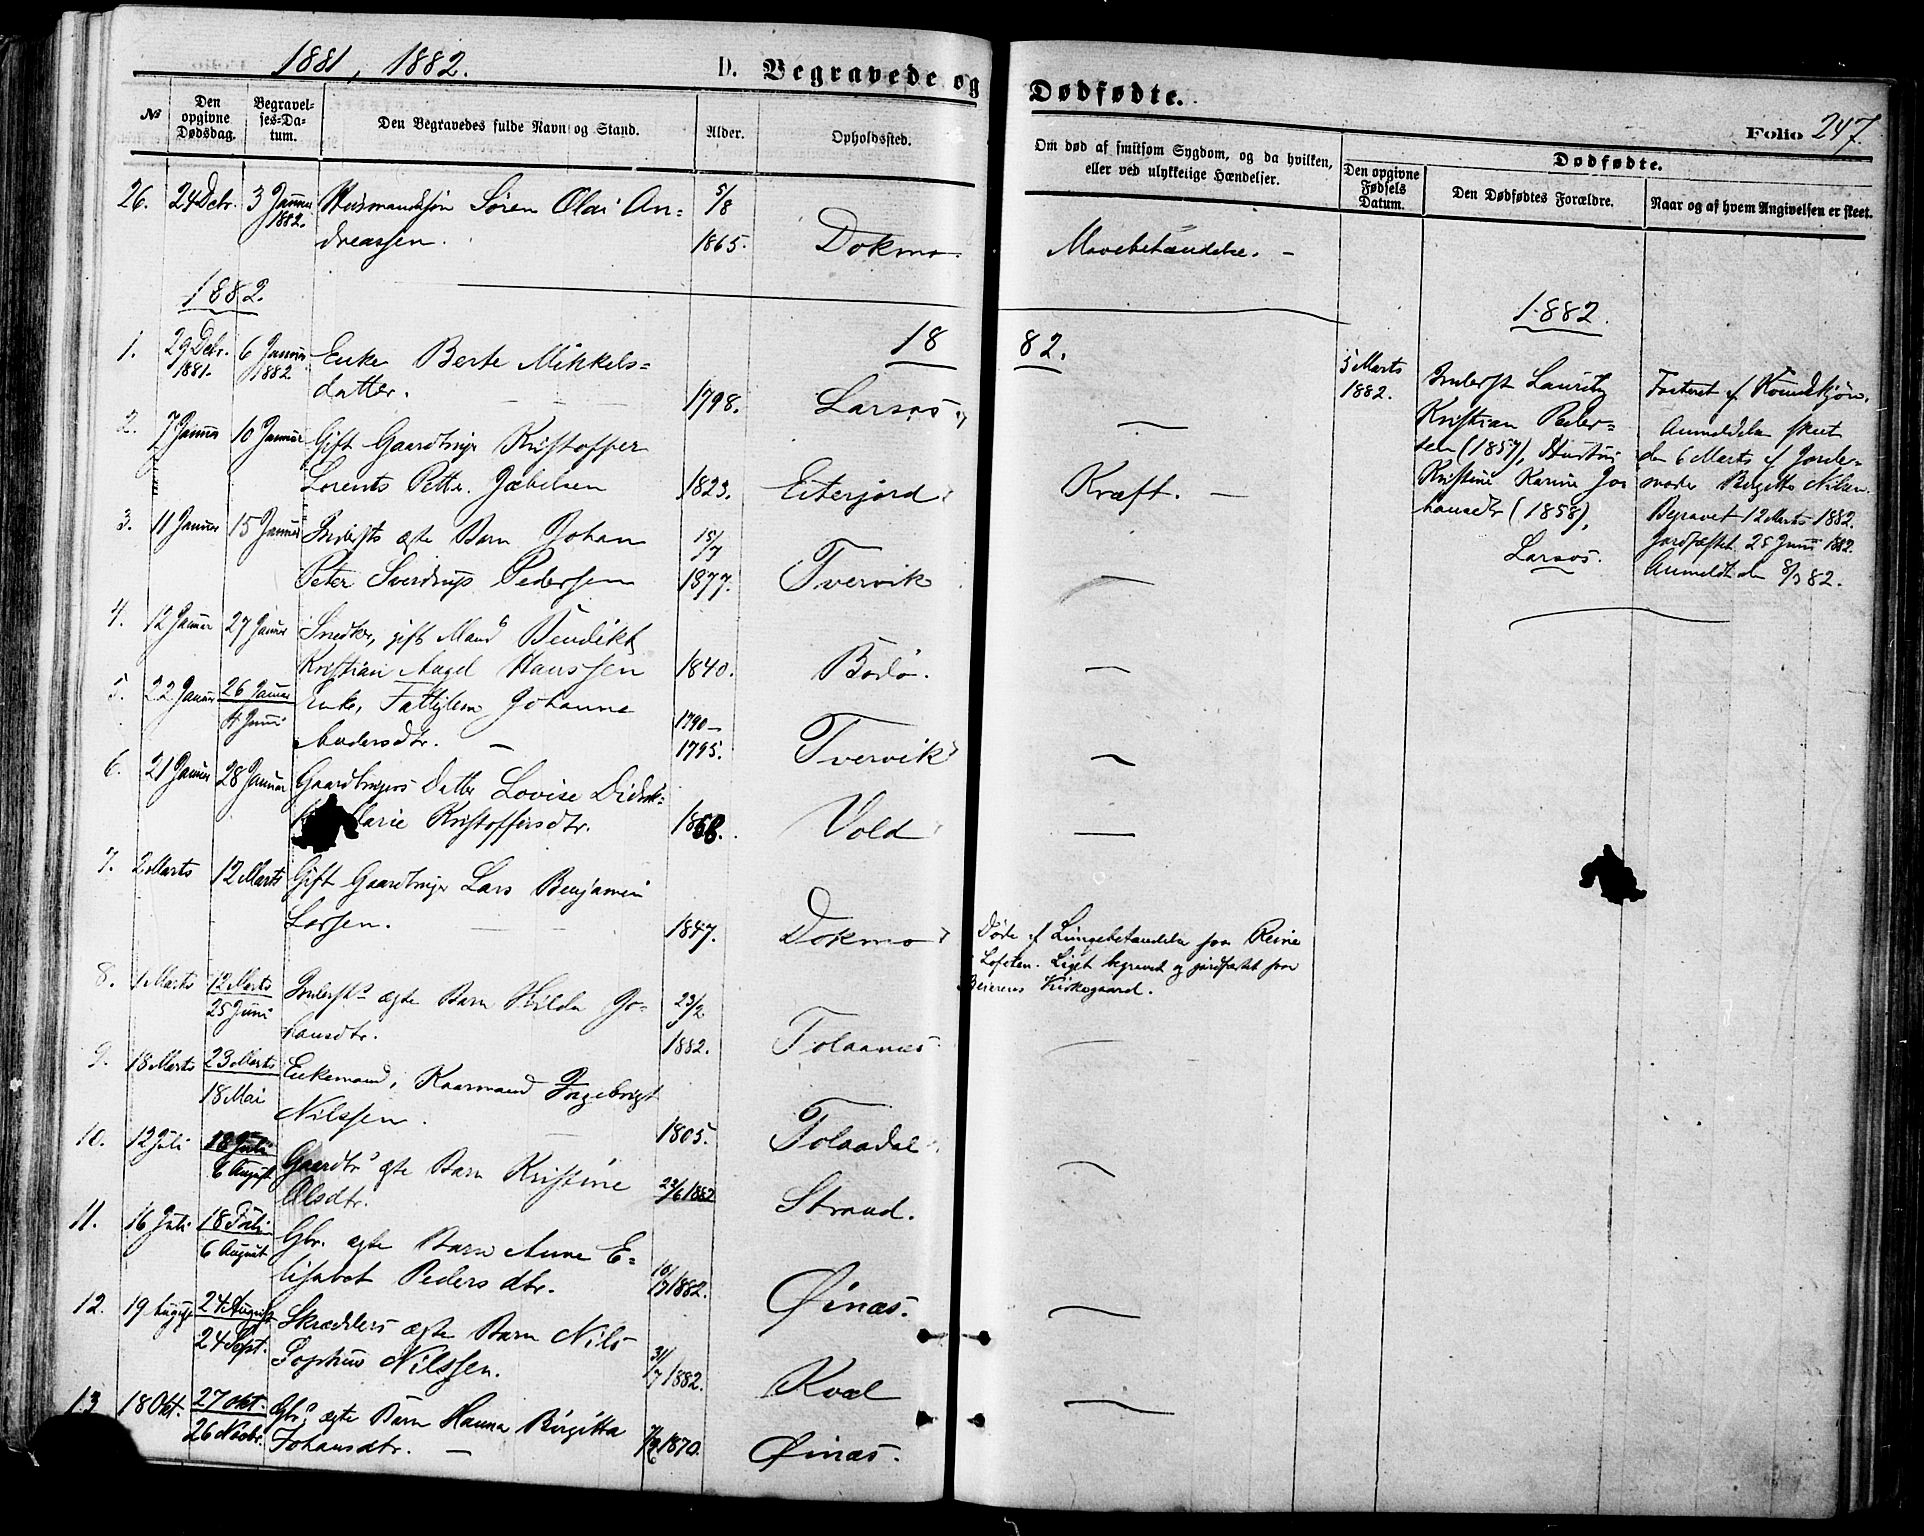 1881, 1882.
D. Begravede og Dødfødte.
Folio 247.
№
Den opgivne Dødsdag.
Begravelses=Datum.
Den Begravedes fulde Navn og Stand.
Alder.
Opholdssted.
Om død af smitsom Sygdom, og da hvilken, eller ved ulykkelige Hændelser.
Dødfødte.
Den opgivne Fødsels Datum.
Den Dødfødtes Forældre.
Naar og af hvem Angivelsen er skeet.
26. 24 Debr. 3 Januar 1882. Husmandssøn Søren Olai An=
dreassen. 5/8 1865. Dokmo. Mavebetændelse. —
1882.
1882.
1882.
1. 29 Debr. 1881. 6 Januar 1882 Enke Berte Mikkels=
datter. 1798. Larsos
2. 7 Januar 10 Januar Gift Gaardbruger Kristoffer
Lorents Petter Jæbelsen 1823. Eiterjord Kræft. —
3. 11 Januar 15 Januar Indersts ægte Barn Johan
Peter Sverdrup Pedersen 15/7 1877. Tvervik
4. 12 Januar 27 Januar Snedker, gift Mand Bendikt
Kristian Angel Hanssen 1840. Bodø.
5. 22 Januar 26 Januar 4 Juni Enke, Fattiglem Johanne
Andersdtr. — 1790— 1795. Tvervik
6. 21 Januar 28 Januar Gaardbrugers Datter Lovise Didrik=
Marie Kristoffersdtr. 1868. Vold
7. 2 Marts 12 Marts Gift Gaardbruger Lars Benjamin
Larsen. 1847. Dokmo
Døde af Lungebetændelse paa Reine
i Lofoten. Liget begravet og jordfæstet paa
Beierens Kirkegaard.
8. 1 Marts 12 Marts 25 Juni Inderst's ægte Barn Hilda Jo=
hansdtr. 23/2 1882. Tolaanes
9. 18 Marts 23 Marts 18 Mai Enkemand, Kaarmand Ingebrigt
Nilssen. 1805. Tolaadal
10. 12 Juli 18 Juli 6 August Gaardbr's ægte Barn Kristine
Olsdtr. 22/6 1882 Strand.
11. 16 Juli 18 Juli 6 August Gbr. ægte Barn Anne E=
lisabet Pedersdtr. 10/7 1882. Øinæs.
12. 19 August 24 August 24 Sept. Skrædders ægte Barn Nils
Sophus Nilssen. 31/7 1882. Kvæl
13 18 Okt. 27 Okt. 26 Novbr. Gbr's ægte Barn Hanna Birgitta
Johansdtr. — 1870. Øinæs.
5 Marts 1882.
Inderst Lauritz
Kristian Peder=
sen (1857), Hustru
Kristine Karine Jo=
hansdtr (1858),
Larsos.
Fosteret af Kvindkjøn.
Anmeldelse skeet
den 6 Marts af Jorde=
moder Birgitte Nilsen.
Begravet 12 Marts 1882.
Jordfæstet 25 Juni 1882.
Anmeldt den 8/3 82.